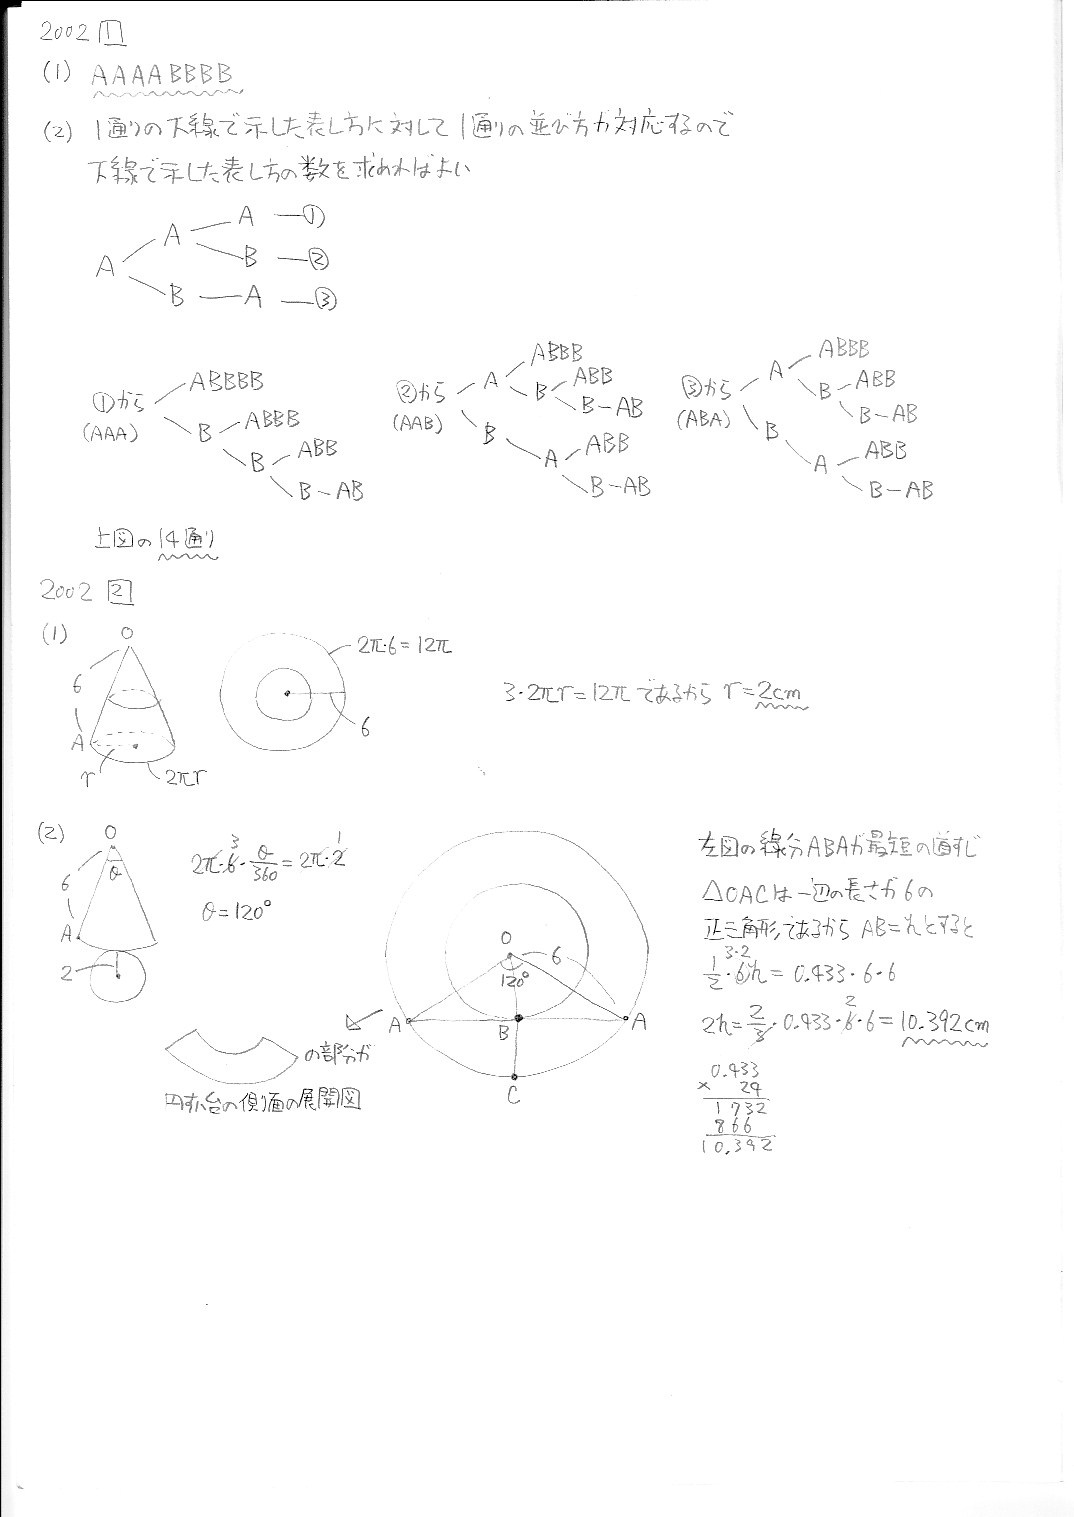 2002 1
(1) AAAABBBB
(2) 1通りの下線で示した表し方に対して1通りの並び方が対応するので
下線で示した表し方の数を求めればよい
A
A
A ①
B ②
B A ③
①から
(AAA)
ABBBB
B
ABBB
B
ABB
B-AB
②から
(AAB)
A
ABBB
B
ABB
B-AB
B
A
ABB
B-AB
③から
(ABA)
A
ABBB
B
ABB
B-AB
B
A
ABB
B-AB
上図の14通り
2002 2
(1)
O
6
A
r
2πr
2π·6=12π
6
3·2πr=12πであるから r=2cm
(2)
O
θ
6
A
2
2π·6·θ/360=2π·2
3
1
θ=120°
の部分が
円すい台の側面の展開図
O
6
120°
A
B
A
C
左図の線分ABAが最短の道すじ
△OACは一辺の長さが6の
正三角形であるから AB=hとすると
3·2
1/2·6h=0.433·6·6
2
2h=2/3·0.433·6·6=10.392cm
0.433
× 24
1732
866
10.392